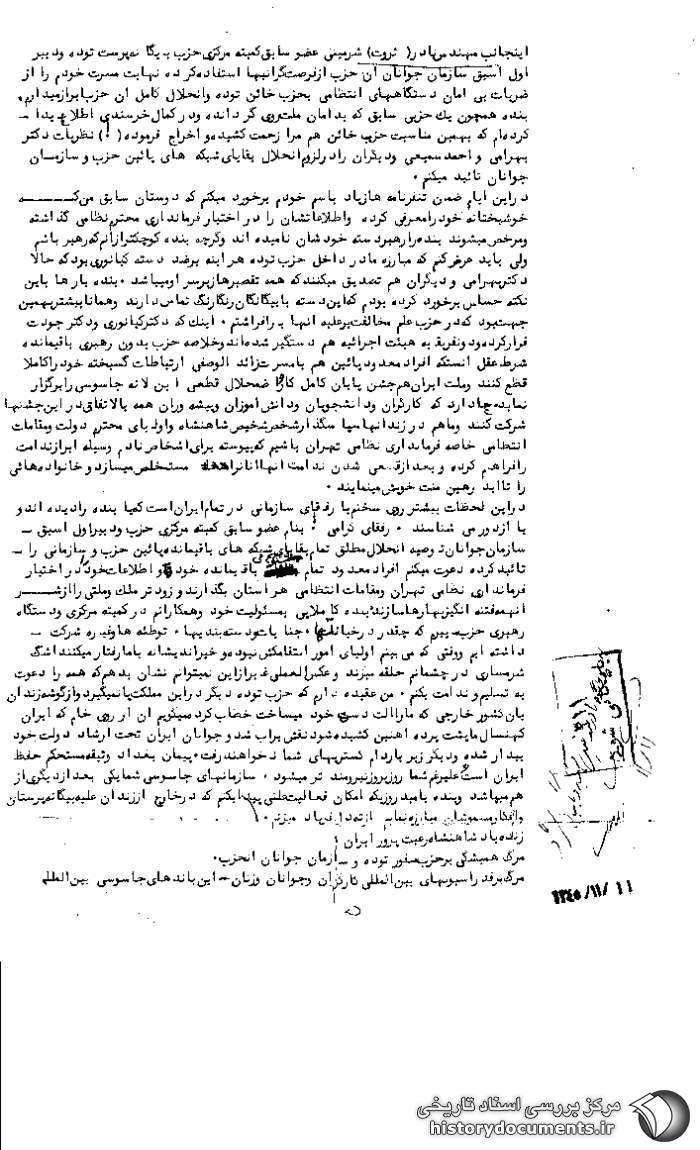 اینجانب مهندس نادر ( ثروت) شرمینی عضو سابق کمیته مرکزی حزب بیگانه پرست توده و دبیر
اول اسبق سازمان جوانان آن حزب از فرصت گرانبها استفاده کرده نهایت مسرت خودم را از
ضربات بی امان دستگاههای انتظامی بحزب خائن توده وانحلال کامل آن حزب ابراز میدارم
بنده همچون یک حزبی سابق که بدامان ملت روی گردانده ودر کمال خرسندی اطلاع پیدا
کرده‌ام که بهمین مناسبت حزب خائن هم مرا زحمت کشیده و اخراج فرموده ( ! ) نظریات دکتر
بهرامی و احمد سمیعی ودیگران را در لزوم انحلال بقایای شبکه های پائین حزب و سازمان
جوانان تائید میکنم ۰
در این ایام ضمن تنفرنامه ها زیاد باسم خودم برخورد میکنم که دوستان سابق من که
خوشبختانه خود را معرفی کرده واطلاعاتشان را در اختیار فرمانداری محترم نظامی گذاشته
ومرخص میشوند بنده را رهبر دسته خودشان نامیده اند وگرچه بنده کوچکتر از آنم که رهبر باشم
ولی باید عرض کنم که مبارزه ما در داخل حزب توده هر اینه بر ضد دسته کیانوری بود که حالا
دکتر بهرامی و دیگران هم تصدیق میکنند که همه تقصیرها زیر سر او میباشد ۰ بنده بارها باین
نکته حساس برخورد کرده بودم که این دسته با بیگانگان رنگارنگ تماس دارند وهمانا بیشتر بهمین
جهت بود که در حزب علم مخالفت بر علیه آنها برافراشتم ۰ اینک که دکتر کیانوری ودکتر جودت
فرار کرده و دو نفر بقیه هیئت اجرائیه هم دستگیر شده‌اند وخلاصه حزب بدون رهبری باقیمانده
شرط عقل آنستکه افراد معدود پائین هم با مسرت زائد الوصفی ارتباطات گسیخته خود را کاملا
قطع کنند وملت ایران هم جشن پایان کامل کار و اضمحلال قطعی این لانه جاسوسی را برگزار
نماید جا دارد که کارگران ودانشجویان ودانش آموزان وپیشه وران همه بالاتفاق در این جشنها
شرکت کنند وما هم در زندانها سپاسگذار شخص شخیص شاهنشاه واولیای محترم دولت ومقامات
انتظامی خاصه فرمانداری نظامی تهران باشیم که پیوسته برای اشخاص نادم وسیله ابراز ندامت
را فراهم کرده و بعد از قطعی شدن ندامت آنها آنانرا مستخلص میسازد و خانواده هائی
را تا ابد رهین منت خویش مینمایند ۰
در این لحظات بیشتر روی سخنم با رفقای سازمانی در تمام ایران است که یا بنده را دیده اند و
یا از دور می شناسند ۰ رفقای گرامی ! بنام عضو سابق کمیته مرکزی حزب ودبیر اول اسبق
سازمان جوانان توصیه انحلال مطلق تمام بقایای شبکه های باقیمانده پائین حزب و سازمانی را
تائید کرده دعوت میکنم افراد معدود تمام باقیمانده خود و اطلاعات خود را در اختیار
فرمانداری نظامی تهران ومقامات انتظامی هر استان بگذارند و زودتر ملک وملتی را از شر
آنهمه فتنه انگیزیها رها سازند بنده کاملا پی بمسئولیت خود وهمکارانم در کمیته مرکزی ودستگاه
رهبری حزب میبرم که چقدر در خیانتها ۰ جنایات ودسته بندیها ۰ توطئه ها وغیره شرکت
داشته ایم ووقتی که می بینم اولیای امور انتقامکش نبوده و خیراندیشانه با ما رفتار میکنند اشک
شرمساری در چشمانم حلقه میزند وعکس العملی غیر از این نمیتوانم نشان بدهم که همه را دعوت
به تسلیم و ندامت بکنم ۰ من عقیده دارم که حزب توده دیگر در این مملکت پا نمیگیرد واز گوشه زندان
بآن کشور خارجی که ما را آلت دست خود میساخت خطاب کرده میگویم آن آرزوی خام که ایران
کهنسال ما پشت پرده آهنین کشیده شود نقش بر آب شد و جوانان ایران تحت ارشاد دولت خود
بیدار شده ودیگر زیر بار دام گستریهای شما نخواهند رفت ۰ پیمان بغداد وثیقه مستحکم حفظ
ایران است و علیرغم شما روز بروز نیرومند تر میشود ۰ سازمانهای جاسوسی شما یکی بعد از دیگری از
هم میپاشد وبنده بامید روزیکه امکان فعالیت علنی پیدا بکنم که در خارج از زندان علیه بیگانه پرستان
وافکار مسمومشان مبارزه نمایم از ته دل فریاد میزنم ۰
زنده باد شاهنشاه رعیت پرور ایران !
مرگ همیشگی بر حزب منفور توده و سازمان جوانان آنحزب۰
مرگ بر فدراسیونهای بین المللی کارگران وجوانان وزنان - این باندهای جاسوسی بین المللی
۱۳۴۵/۱۱/۱۱
مرکز بررسی اسناد تاریخی
historydocuments.ir